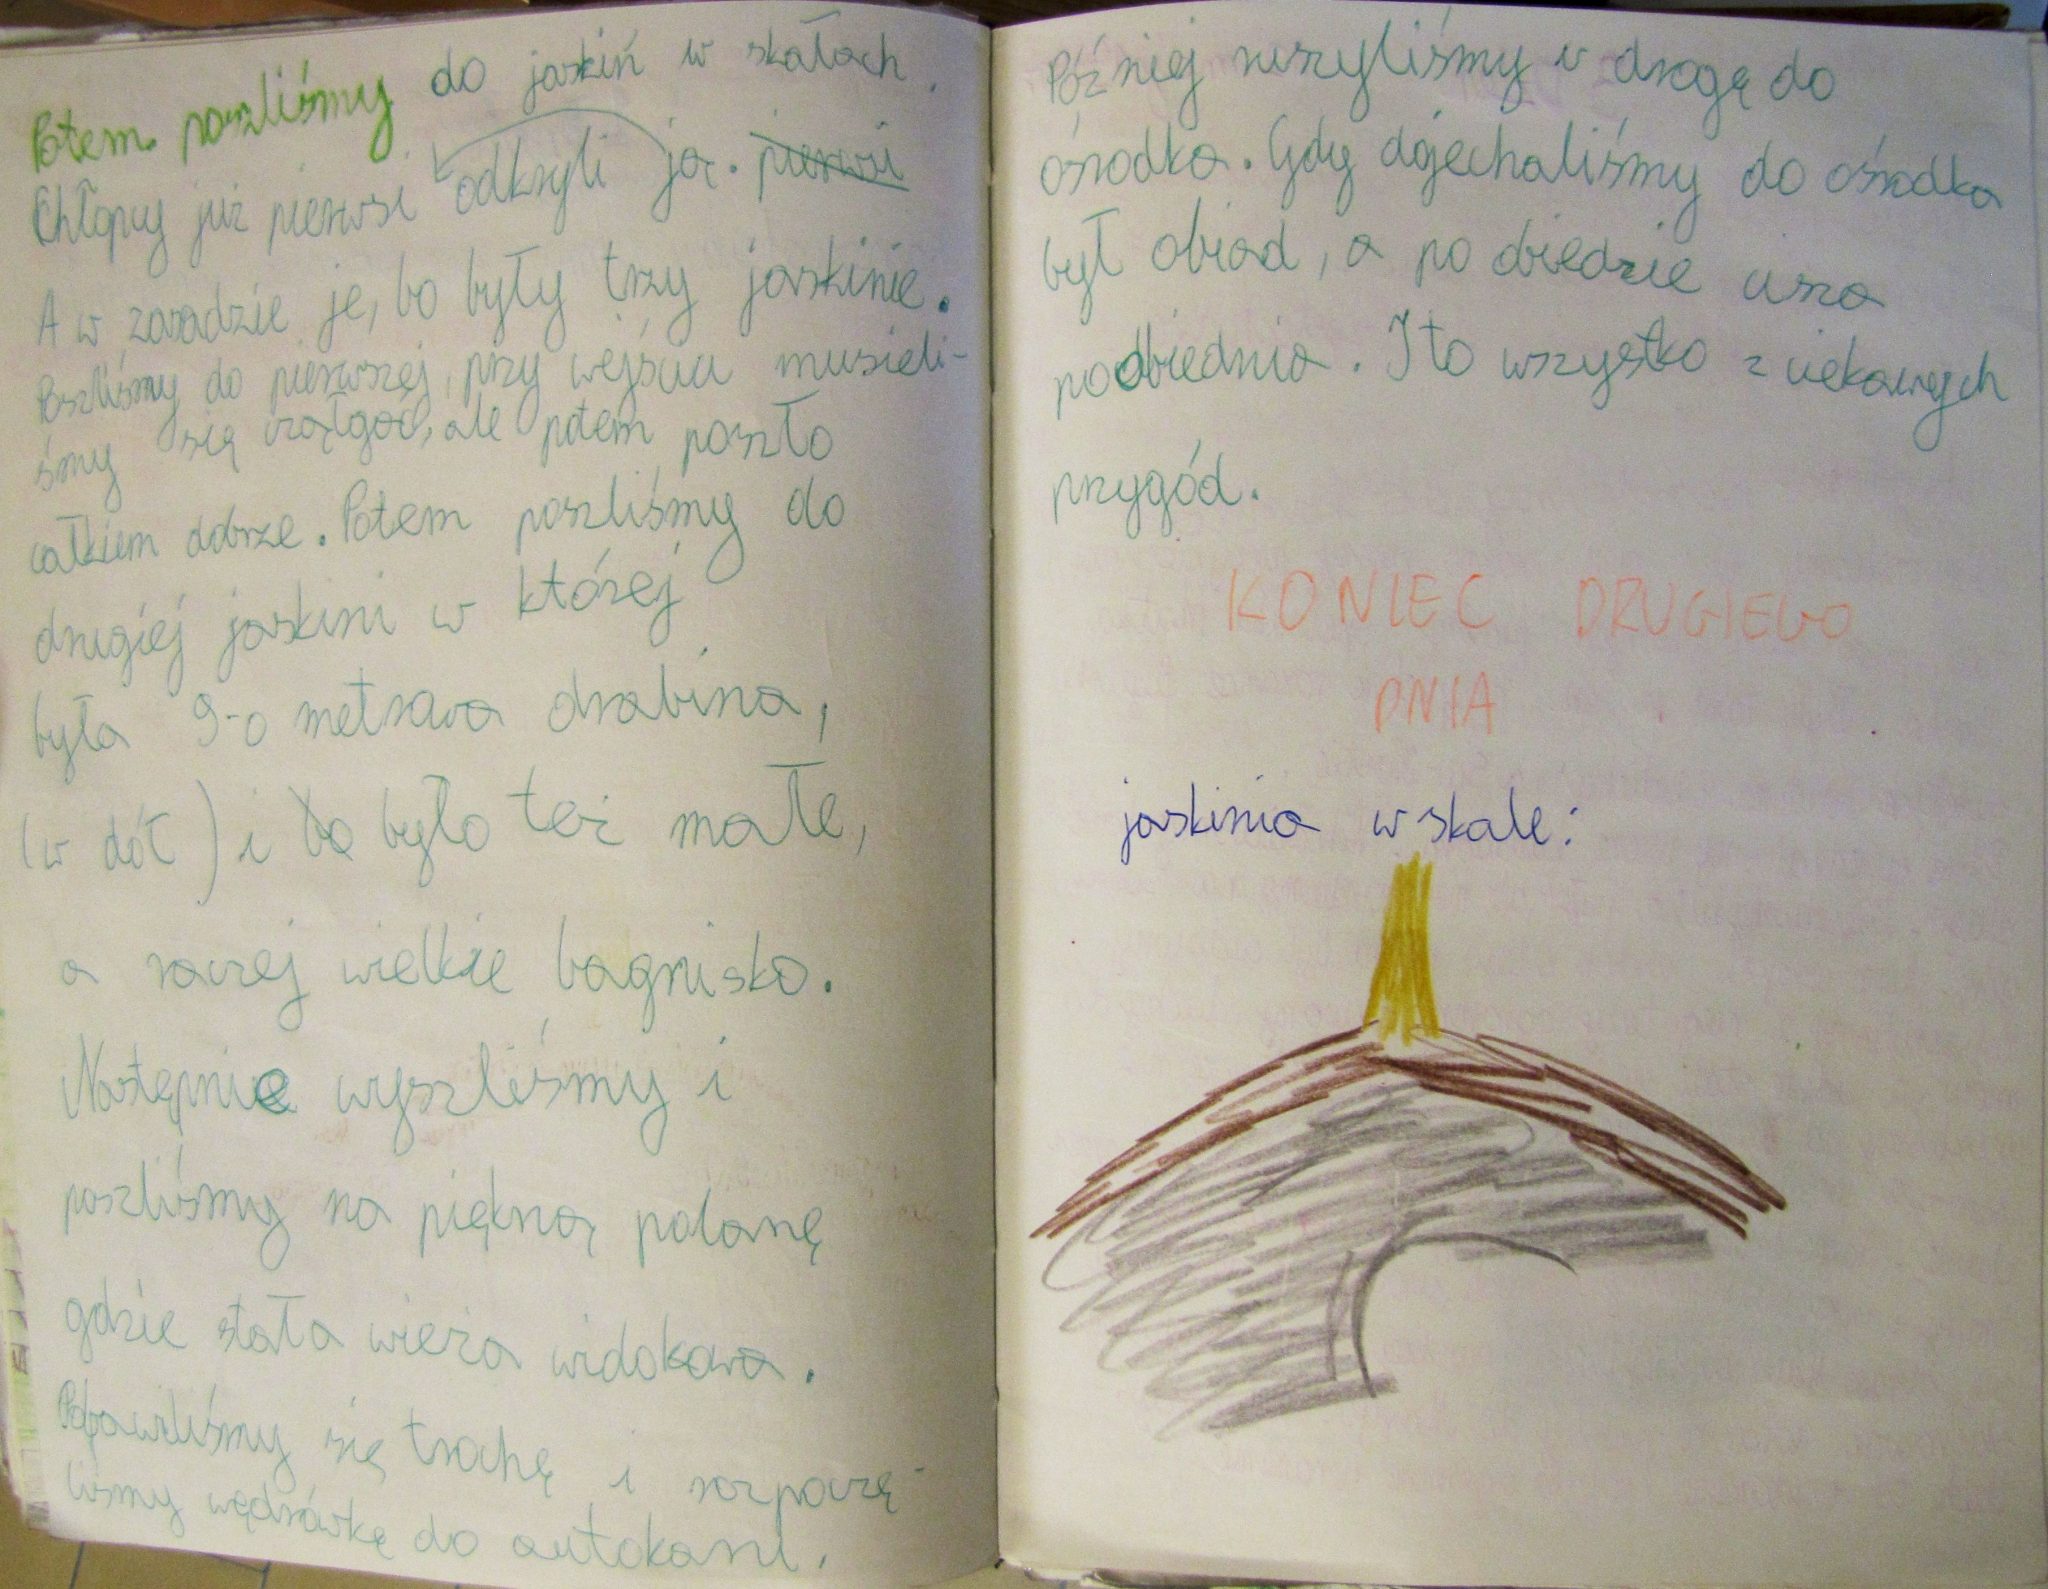 Potem poszliśmy do jaskiń w skałach.
Chłopcy już pierwsi odkryli ją. pierwsi
A w zasadzie je, bo były trzy jaskinie.
Poszliśmy do pierwszej, przy wejściu musieli-
śmy się czołgać, ale potem poszło
całkiem dobrze. Potem poszliśmy do
drugiej jaskini w której
była 9-o metrowa drabina,
(w dół) i bo było też małe,
a raczej wielkie bagnisko.
Następnie wyszliśmy i
poszliśmy na piękną polanę
gdzie stała wieża widokowa.
Pobawiliśmy się trochę i rozpoczę-
liśmy wędrówkę do autokaru.
Później ruszyliśmy w drogę do
ośrodka. Gdy dojechaliśmy do ośrodka
był obiad, a po obiedzie cisza
poobiednia. I to wszystko z ciekawych
przygód.
KONIEC DRUGIEGO
DNIA
jaskinia w skale: